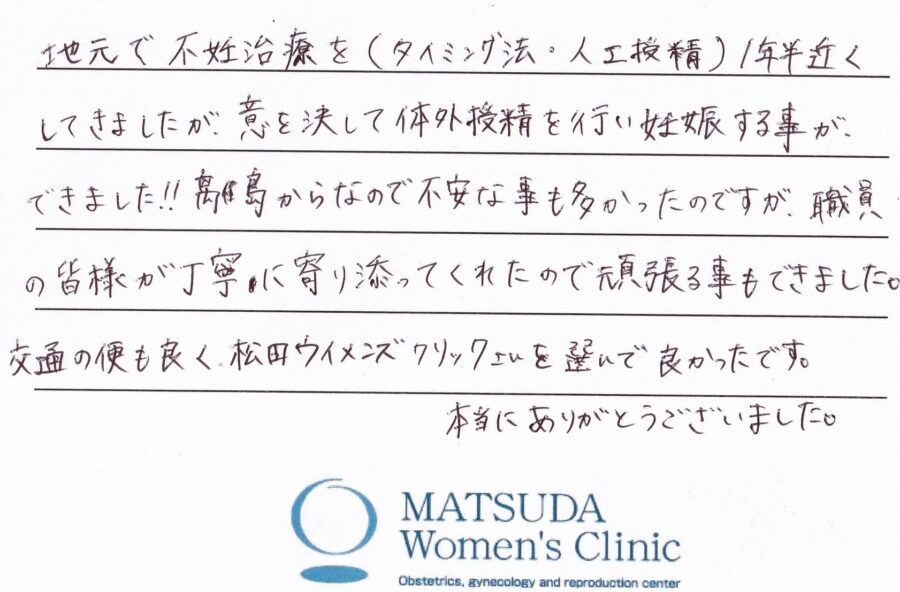 地元で不妊治療を(タイミング法・人工授精)1年半近く
してきましたが、意を決して体外授精を行い妊娠する事が、
できました!!離島からなので不安な事も多かったのですが、職員
の皆様が丁寧に寄り添ってくれたので頑張る事もできました。
交通の便も良く、松田ウイメンズクリックさんを選んで良かったです。
本当にありがとうございました。
MATSUDA
Women's Clinic
Obstetrics, gynecology and reproduction center